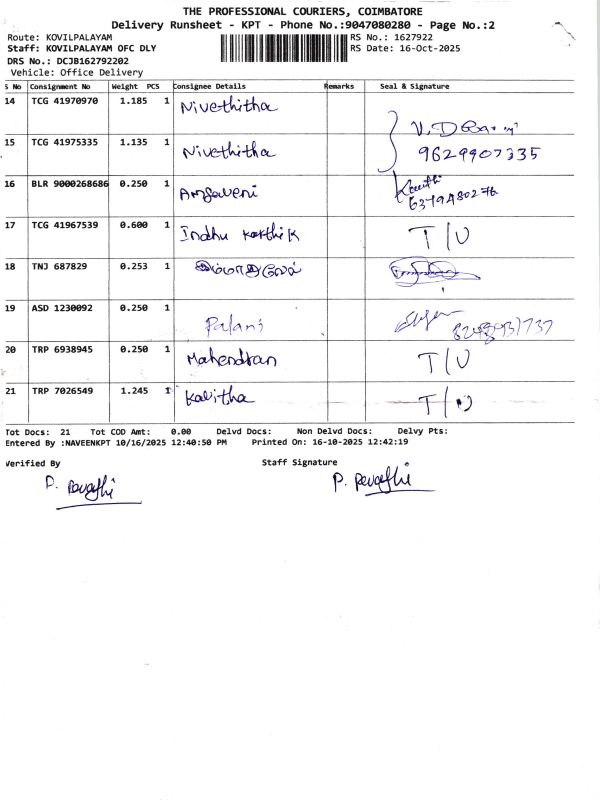 THE PROFESSIONAL COURIERS, COIMBATORE
Delivery Runsheet - KPT - Phone No.:9047080280 - Page No.:2
Route: KOVILPALAYAM RS No.: 1627922
Staff: KOVILPALAYAM OFC DLY RS Date: 16-Oct-2025
DRS No.: DCJB162792202
Vehicle: Office Delivery
S No Consignment No Weight PCS Consignee Details Remarks Seal & Signature
14 TCG 41970970 1.185 1 Nivethitha
15 TCG 41975335 1.135 1 Nivethitha 9629907335
16 BLR 9000268686 0.250 1
17 TCG 41967539 0.600 1 Indhu karthik T/U
18 TNJ 687829 0.253 1
19 ASD 1230092 0.250 1 Palani
20 TRP 6938945 0.250 1 Mahendran T/U
21 TRP 7026549 1.245 1 Kavitha T/U
Tot Docs: 21 Tot COD Amt: 0.00 Delvd Docs: Non Delvd Docs: Delvy Pts:
Entered By :NAVEENKPT 10/16/2025 12:40:50 PM Printed On: 16-10-2025 12:42:19
Verified By Staff Signature
P. Revathi P. Revathi